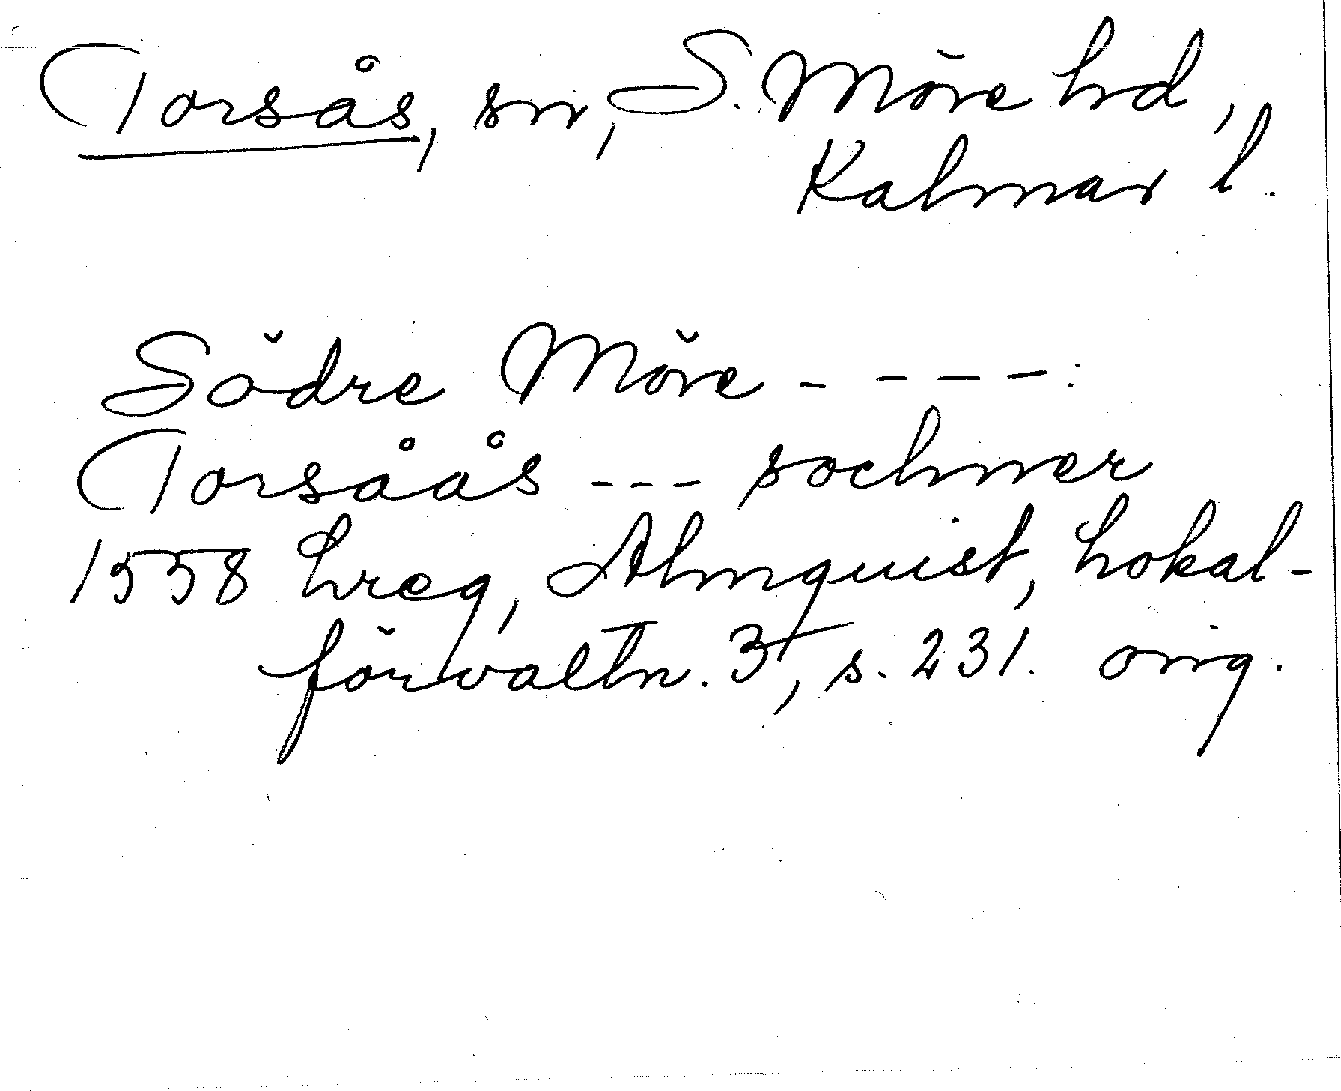 Torsås, sn, S. Möre hd,
Kalmar l.
Södre Möre - - - - :
Torsåås - - - sochner
1558 hreg, Almquist, Lokal-
förvaltn. 3, s. 231. orig.